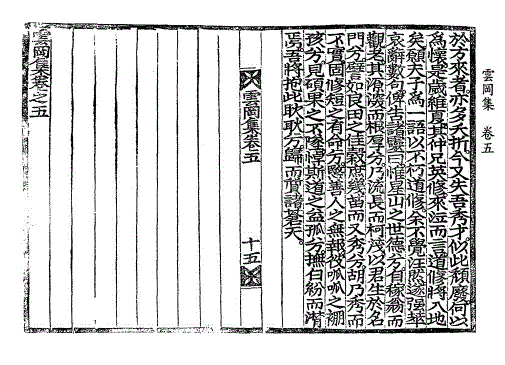 於方來者亦多夭折今又失吾秀才似此頹廢何以
爲懷是歲維夏其仲兄英修來泣而言道修將入地
矣願天子爲一語以不朽道修余不覺汪然遂强草
哀辭數句俾告諸靈曰惟星山之世德兮有稼翁而
觀老其源濬而根厚兮乃流長而柯茂以君生於名
門兮譬如良田之佳穀庶幾苗而又秀兮胡乃秀而
不實固修短之有命兮慜善人之無報彼呱呱之襁
孩兮見碩果之不墜悼斯道之益孤兮撫白紛而潸
焉吾將抱此耿耿兮歸而質諸蒼天
雲岡集卷五
十五
雲岡集卷之五
雲岡集 卷五